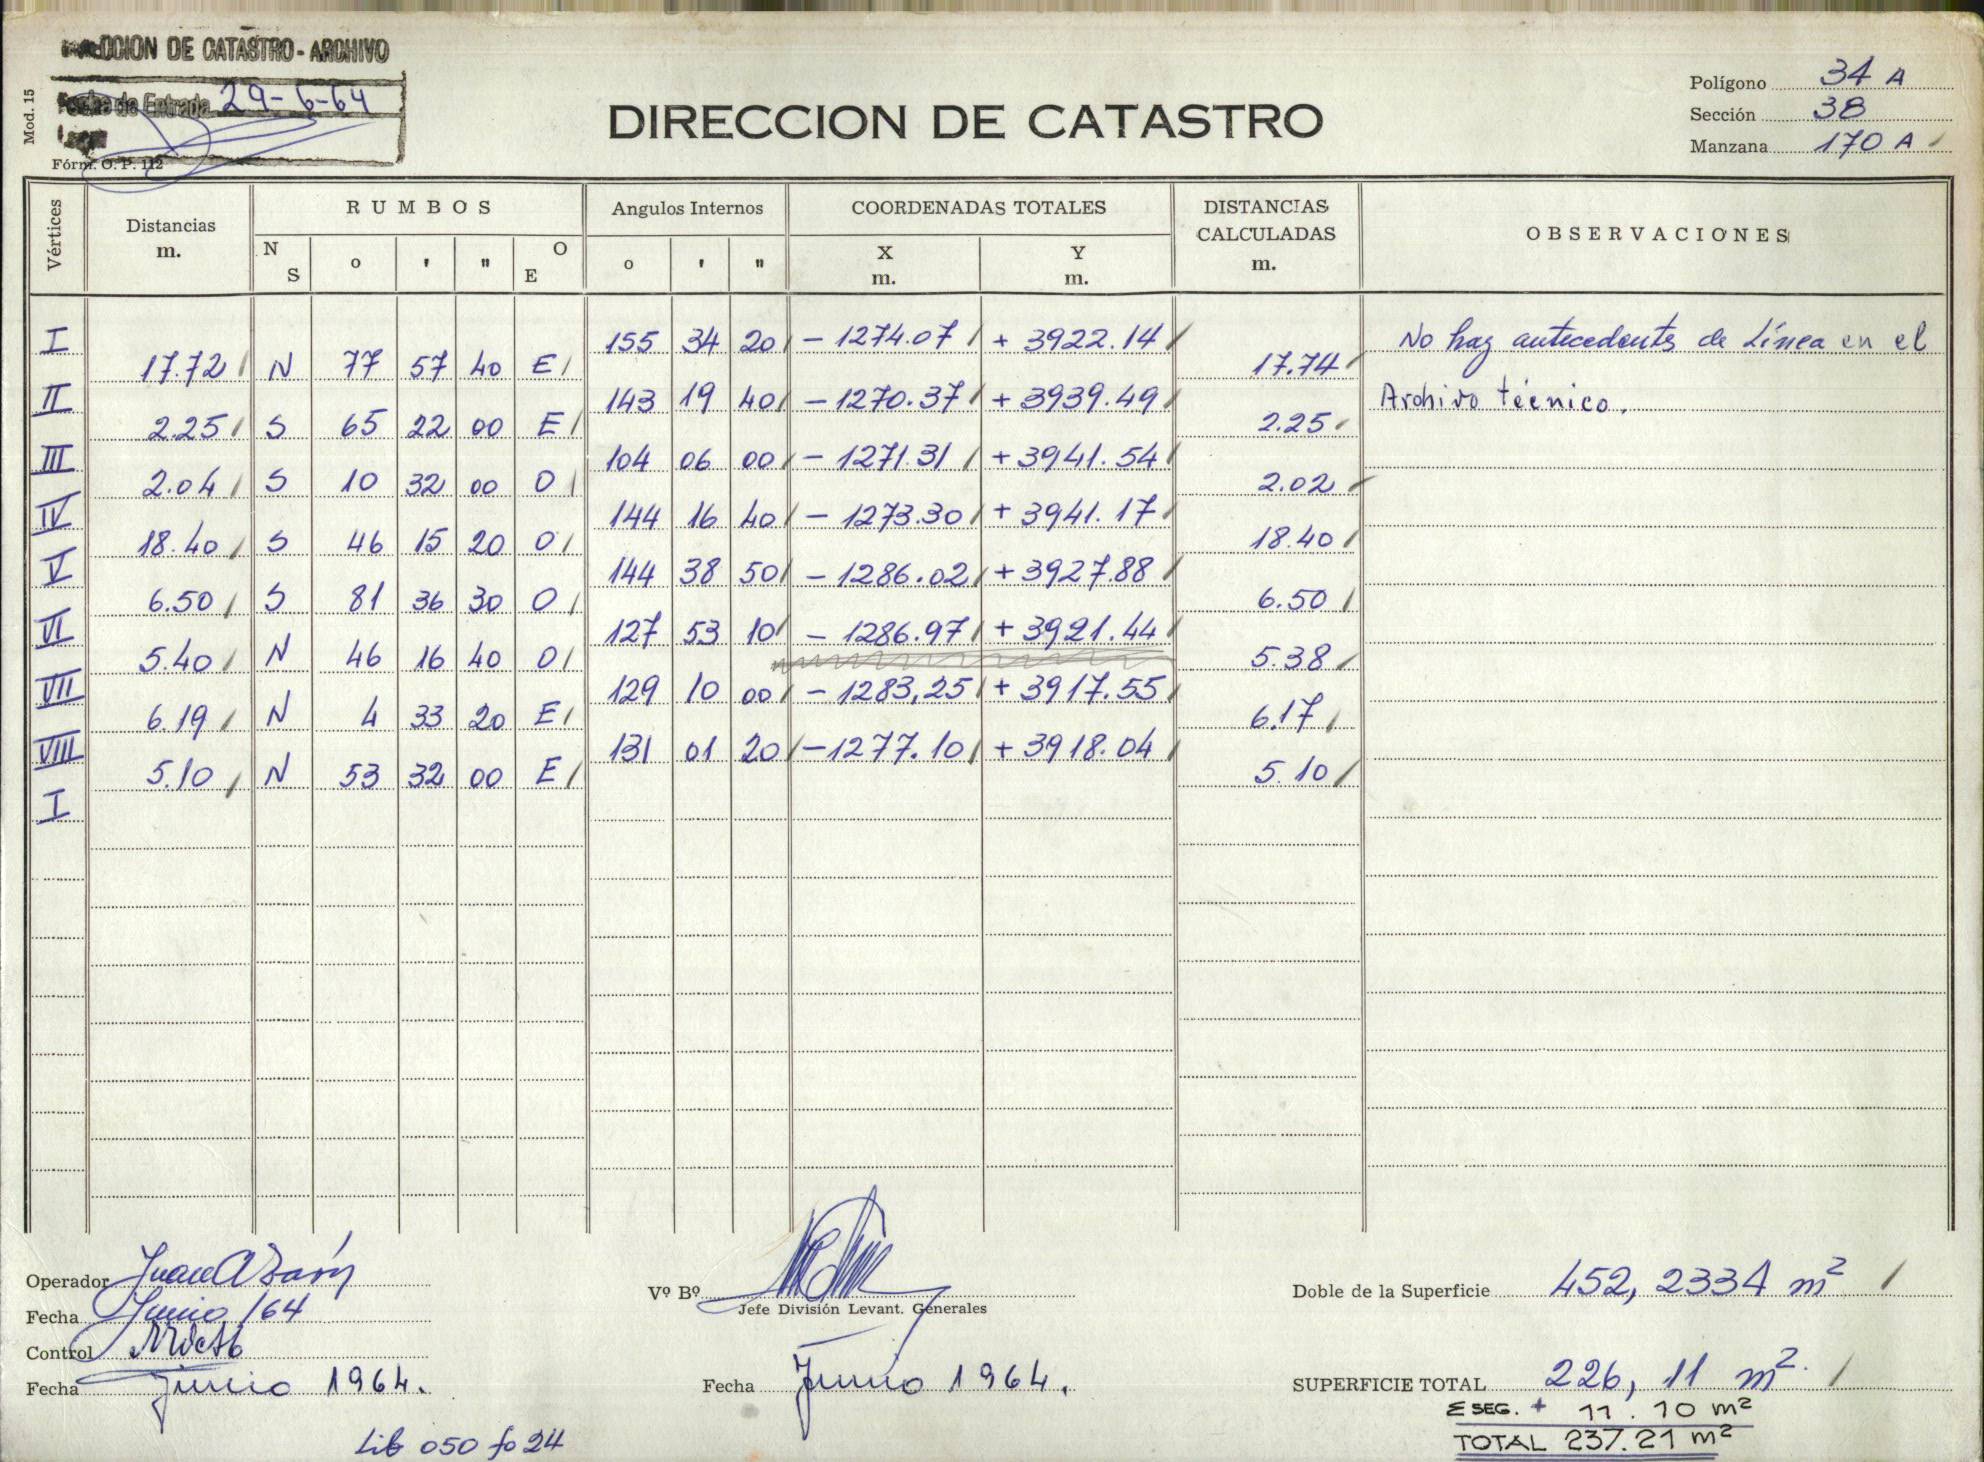 CCION DE CATASTRO - ARCHIVO
Fecha de Entrada 29-6-64
Mod. 15
Fórm. O. P. 112
DIRECCION DE CATASTRO
Polígono 34 A
Sección 38
Manzana 170 A
Vértices Distancias m. RUMBOS Angulos Internos COORDENADAS TOTALES DISTANCIAS CALCULADAS m. OBSERVACIONES
N S ° ' " O E ° ' " X m. Y m.
I 155 34 20 - 1274.07 + 3922.14 No hay antecedentes de Línea en el
17.72 N 77 57 40 E 17.74
II 143 19 40 - 1270.37 + 3939.49 Archivo técnico.
2.25 S 65 22 00 E 2.25
III 104 06 00 - 1271.31 + 3941.54
2.04 S 10 32 00 O 2.02
IV 144 16 40 - 1273.30 + 3941.17
18.40 S 46 15 20 O 18.40
V 144 38 50 - 1286.02 + 3927.88
6.50 S 81 36 30 O 6.50
VI 127 53 10 - 1286.97 + 3921.44
5.40 N 46 16 40 O 5.38
VII 129 10 00 - 1283,25 + 3917.55
6.19 N 4 33 20 E 6.17
VIII 131 01 20 - 1277.10 + 3918.04
5.10 N 53 32 00 E 5.10
I
Operador Juan A
Fecha Junio /64
Control
Fecha Junio 1964.
Vº Bº
Jefe División Levant. Generales
Fecha Junio 1964.
Lib 050 fo 24
Doble de la Superficie 452, 2334 m²
SUPERFICIE TOTAL 226, 11 m².
Σ SEG. + 11.10 m²
TOTAL 237.21 m²